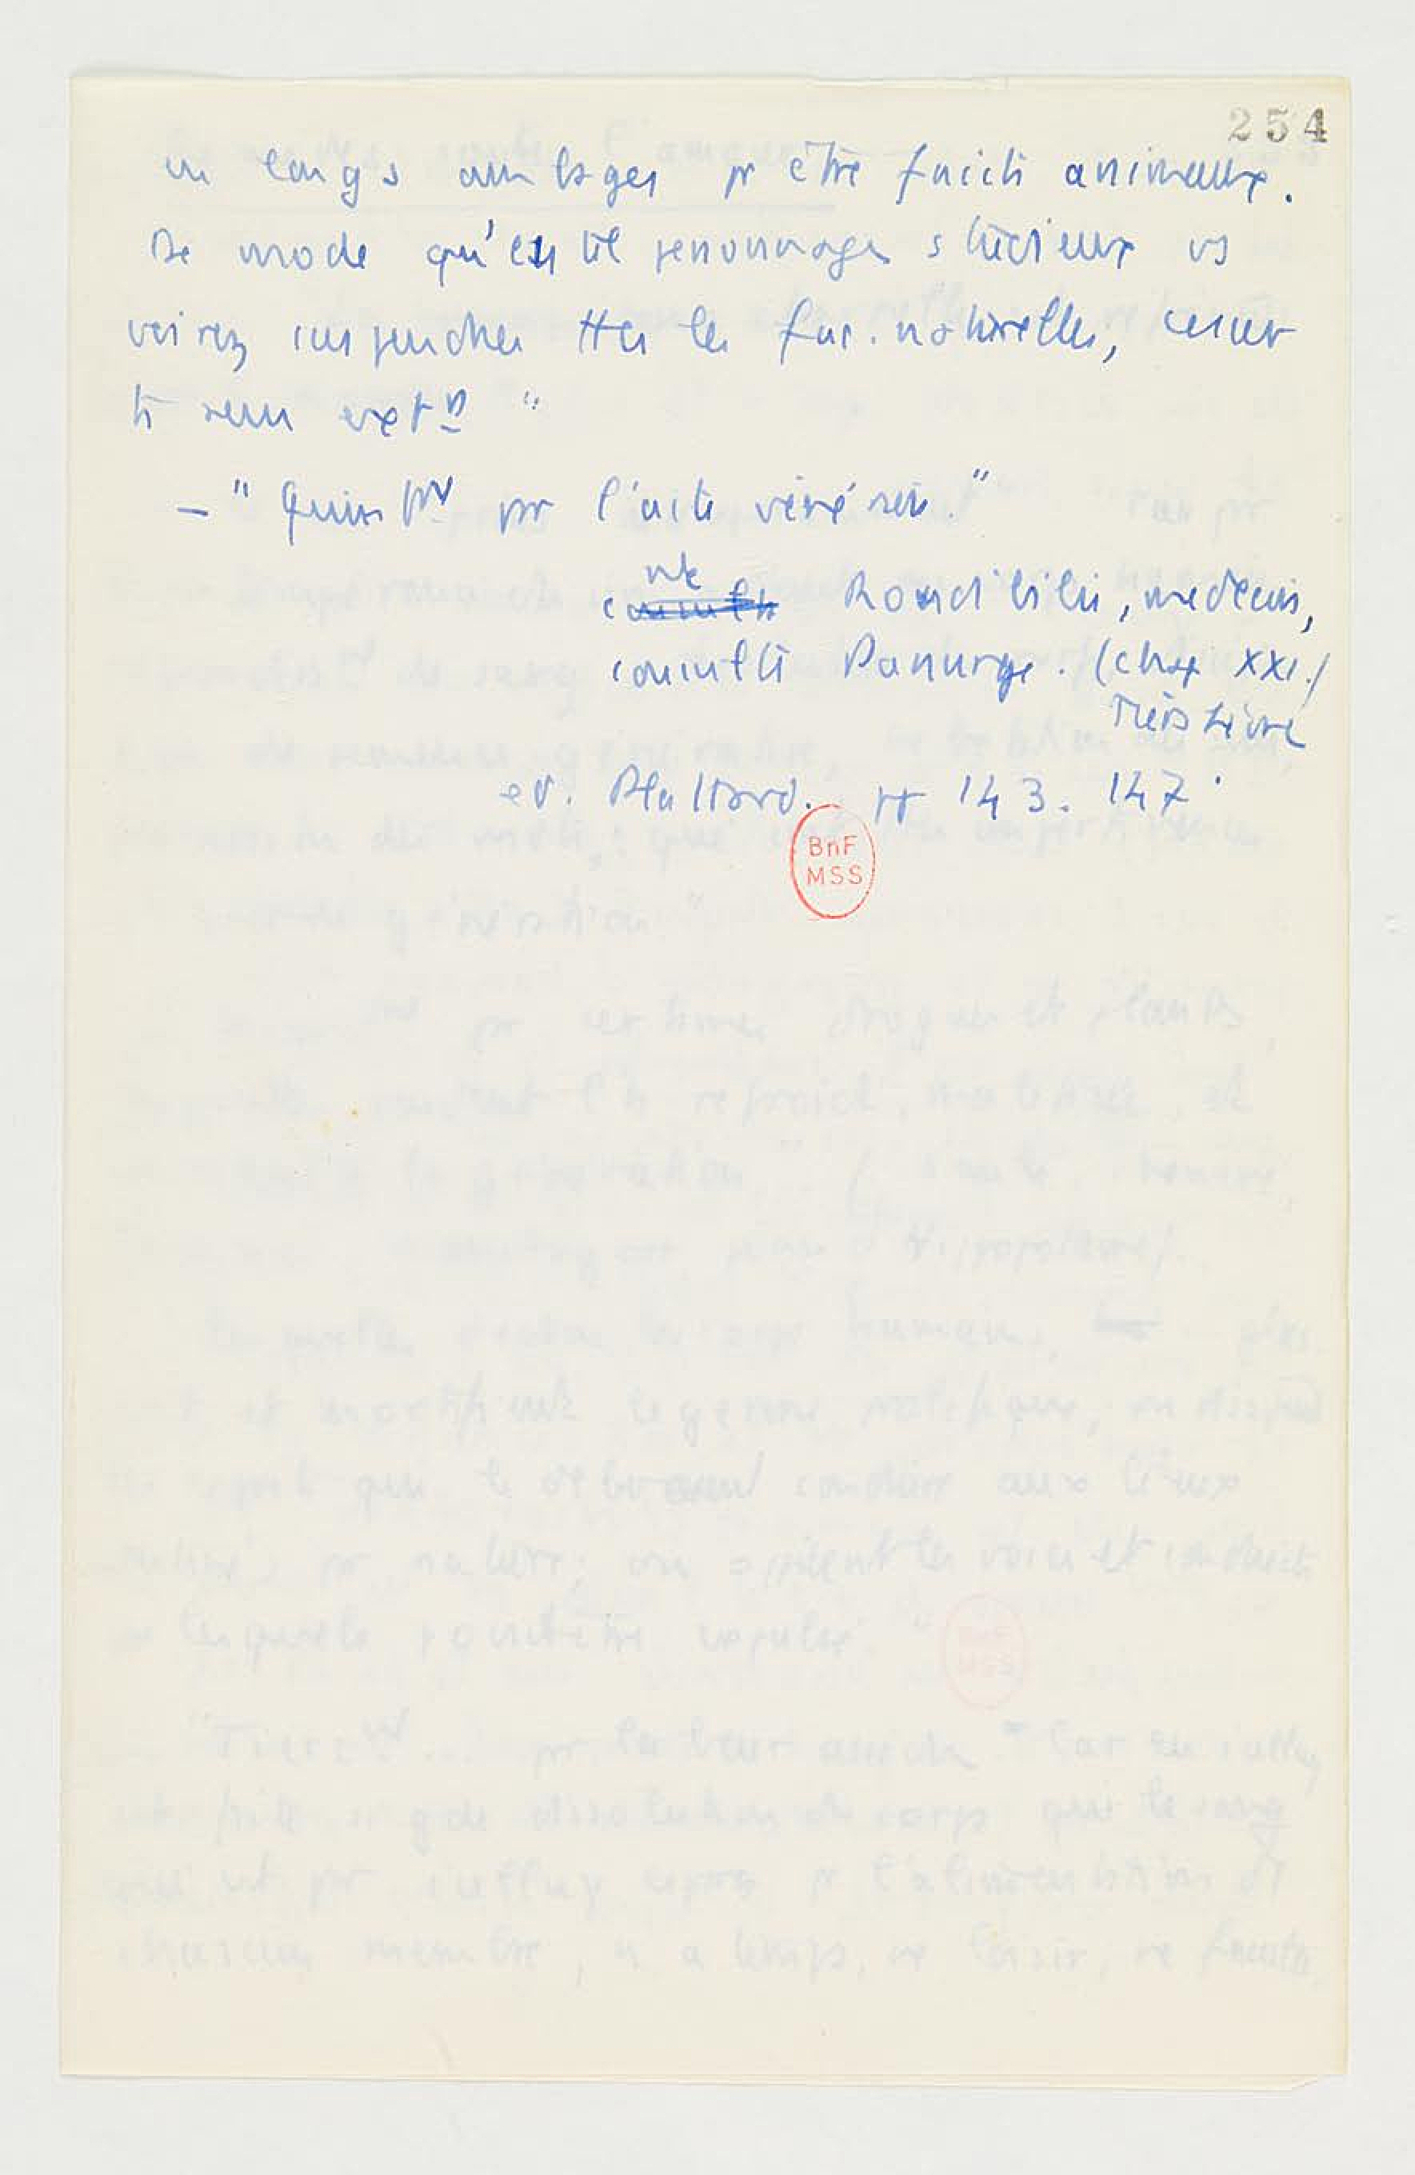 254
en longs ambages pr être faicts animaulx.
De mode qu'en tel personnage studieux vs
voirez suspendues ttes les fac. naturelles, cesser
ts sens extⁿ "
– " Quintᵗ pr l'acte vénérien. "
note
Rondibilis, médecin,
consulté Panurge. (chap XXXI)
Tiers Livre
ed. Plattard. pp 143. 147.
BnF
MSS